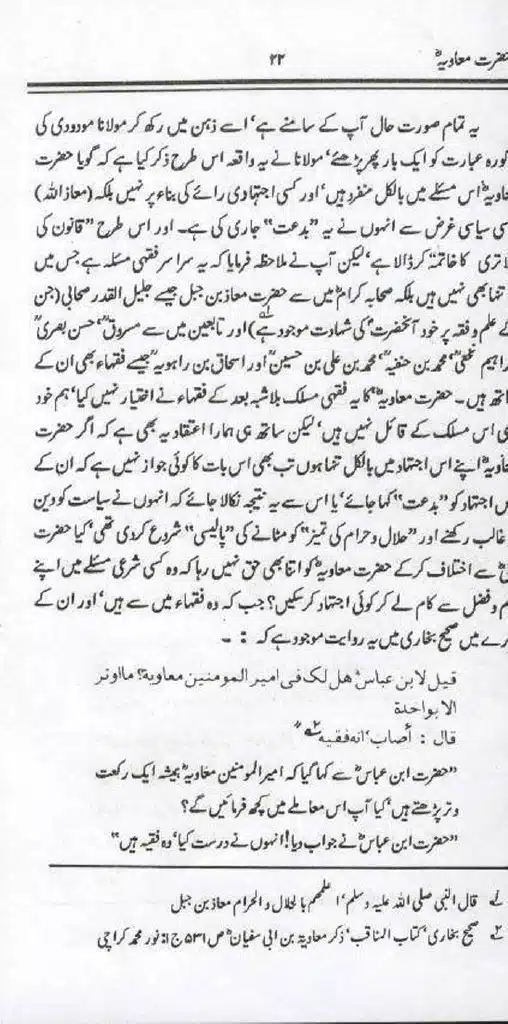 حضرت معاویہؓ ۲۲
یہ تمام صورت حال آپ کے سامنے ہے، اسے ذہن میں رکھ کر مولانا مودودی کی
کورہ عبارت کو ایک بار پھر پڑھئے، مولانا نے یہ واقعہ اس طرح ذکر کیا ہے کہ گویا حضرت
اویہؓ اس مسئلے میں بالکل منفرد ہیں، اور کسی اجتہادی رائے کی بناء پر نہیں بلکہ (معاذ اللہ)
سی سیاسی غرض سے انہوں نے یہ "بدعت" جاری کی ہے۔ اور اس طرح "قانون کی
لاتری کا خاتمہ" کر ڈالا ہے، لیکن آپ نے ملاحظہ فرمایا کہ یہ سراسر فقہی مسئلہ ہے جس میں
تنہا بھی نہیں ہیں بلکہ صحابہ کرامؓ میں سے حضرت معاذ بن جبل جیسے جلیل القدر صحابی (جن
کے علم و فقہ پر خود آنحضرتؐ کی شہادت موجود ہے۱) اور تابعین میں سے مسروقؒ، حسن بصریؒ
راہیم نخعیؒ، محمد بن حنفیہؒ، محمد بن علی بن حسینؒ اور اسحاق بن راہویہؒ جیسے فقہاء بھی ان کے
اتھ ہیں۔ حضرت معاویہؓ کا یہ فقہی مسلک بلاشبہ بعد کے فقہاء نے اختیار نہیں کیا، ہم خود
ی اس مسلک کے قائل نہیں ہیں، لیکن ساتھ ہی ہمارا اعتقاد یہ بھی ہے کہ اگر حضرت
عاویہؓ اپنے اس اجتہاد میں بالکل تنہا ہوں تب بھی اس بات کا کوئی جواز نہیں ہے کہ ان کے
س اجتہاد کو "بدعت" کہا جائے، یا اس سے یہ نتیجہ نکالا جائے کہ انہوں نے سیاست کو دین
غالب رکھنے اور "حلال و حرام کی تمیز" کو مٹانے کی "پالیسی" شروع کر دی تھی، کیا حضرت
یؓ سے اختلاف کر کے حضرت معاویہؓ کو اتنا بھی حق نہیں رہا کہ وہ کسی شرعی مسئلے میں اپنے
م و فضل سے کام لے کر کوئی اجتہاد کر سکیں؟ جب کہ وہ فقہاء میں سے ہیں، اور ان کے
رے میں صحیح بخاری میں یہ روایت موجود ہے کہ : ۔
قیل لابن عباسؓ هل لک فی امیر المومنین معاویة؟ ما اوتر
الا بواحدة
قال : أصاب، انه فقیه ۲
"حضرت ابن عباسؓ سے کہا گیا کہ امیر المومنین معاویہؓ ہمیشہ ایک رکعت
وتر پڑھتے ہیں، کیا آپ اس معاملے میں کچھ فرمائیں گے؟
"حضرت ابن عباسؓ نے جواب دیا! انہوں نے درست کیا، وہ فقیہ ہیں"
۱ قال النبی صلی اللہ علیہ وسلم، اعلمھم بالحلال والحرام معاذ بن جبل
۲ صحیح بخاری، کتاب المناقب، ذکر معاویۃ بن ابی سفیان ص ۵۳۱ ج ۱: نور محمد کراچی